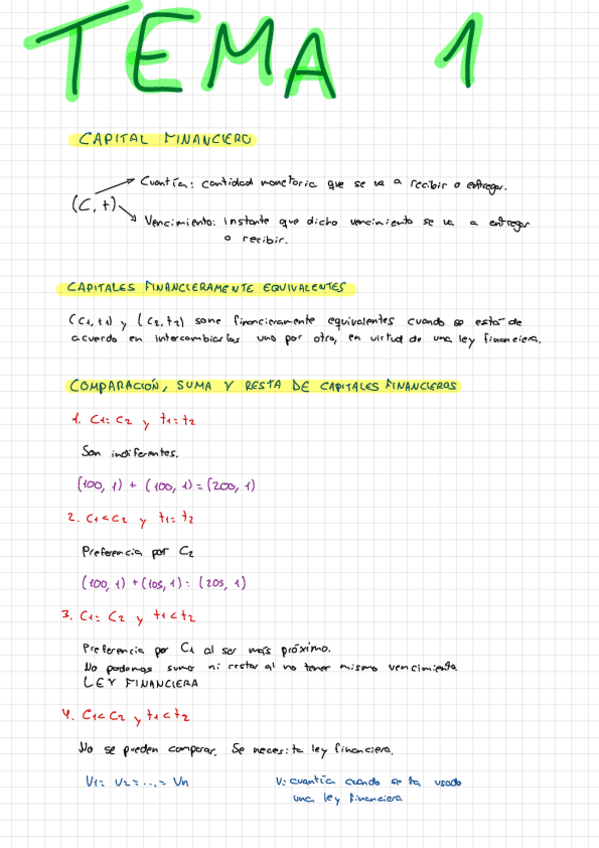 TEMA 1
CAPITAL FINANCIERO
Cuantía: cantidad monetaria que se va a recibir o entregar.
(C, t)
Vencimiento: Instante que dicho vencimiento se va a entregar
o recibir.
CAPITALES FINANCIERAMENTE EQUIVALENTES
(C1, t1) y (C2, t2) sone financieramente equivalentes cuando se está de
acuerdo en intercambiarlas uno por otro, en virtud de una ley financiera.
COMPARACIÓN, SUMA Y RESTA DE CAPITALES FINANCIEROS
1. C1 = C2 y t1 = t2
Son indiferentes.
(100, 1) + (100, 1) = (200, 1)
2. C1 < C2 y t1 = t2
Preferencia por C2
(100, 1) + (105, 1) = (205, 1)
3. C1 = C2 y t1 < t2
Preferencia por C1 al ser más próximo.
No podemos sumar ni restar al no tener mismo vencimiento
LEY FINANCIERA
4. C1 < C2 y t1 < t2
No se pueden comparar. Se necesita ley financiera.
V1 = V2 = ... = Vn
V: cuantía cuando se ha usado
una ley financiera